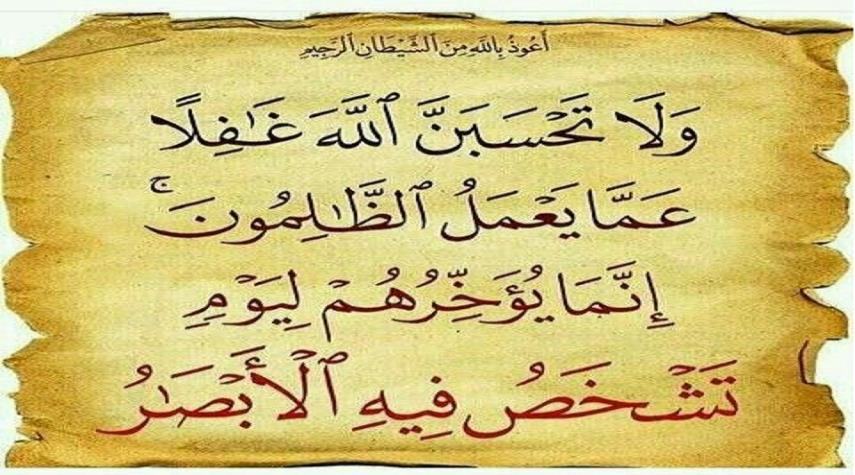 أَعُوذُ بِاللَّهِ مِنَ الشَّيْطَانِ الرَّجِيمِ
وَلَا تَحْسَبَنَّ ٱللَّهَ غَٰفِلًا
عَمَّا يَعْمَلُ ٱلظَّٰلِمُونَ ۚ
إِنَّمَا يُؤَخِّرُهُمْ لِيَوْمٍ
تَشْخَصُ فِيهِ ٱلْأَبْصَٰرُ